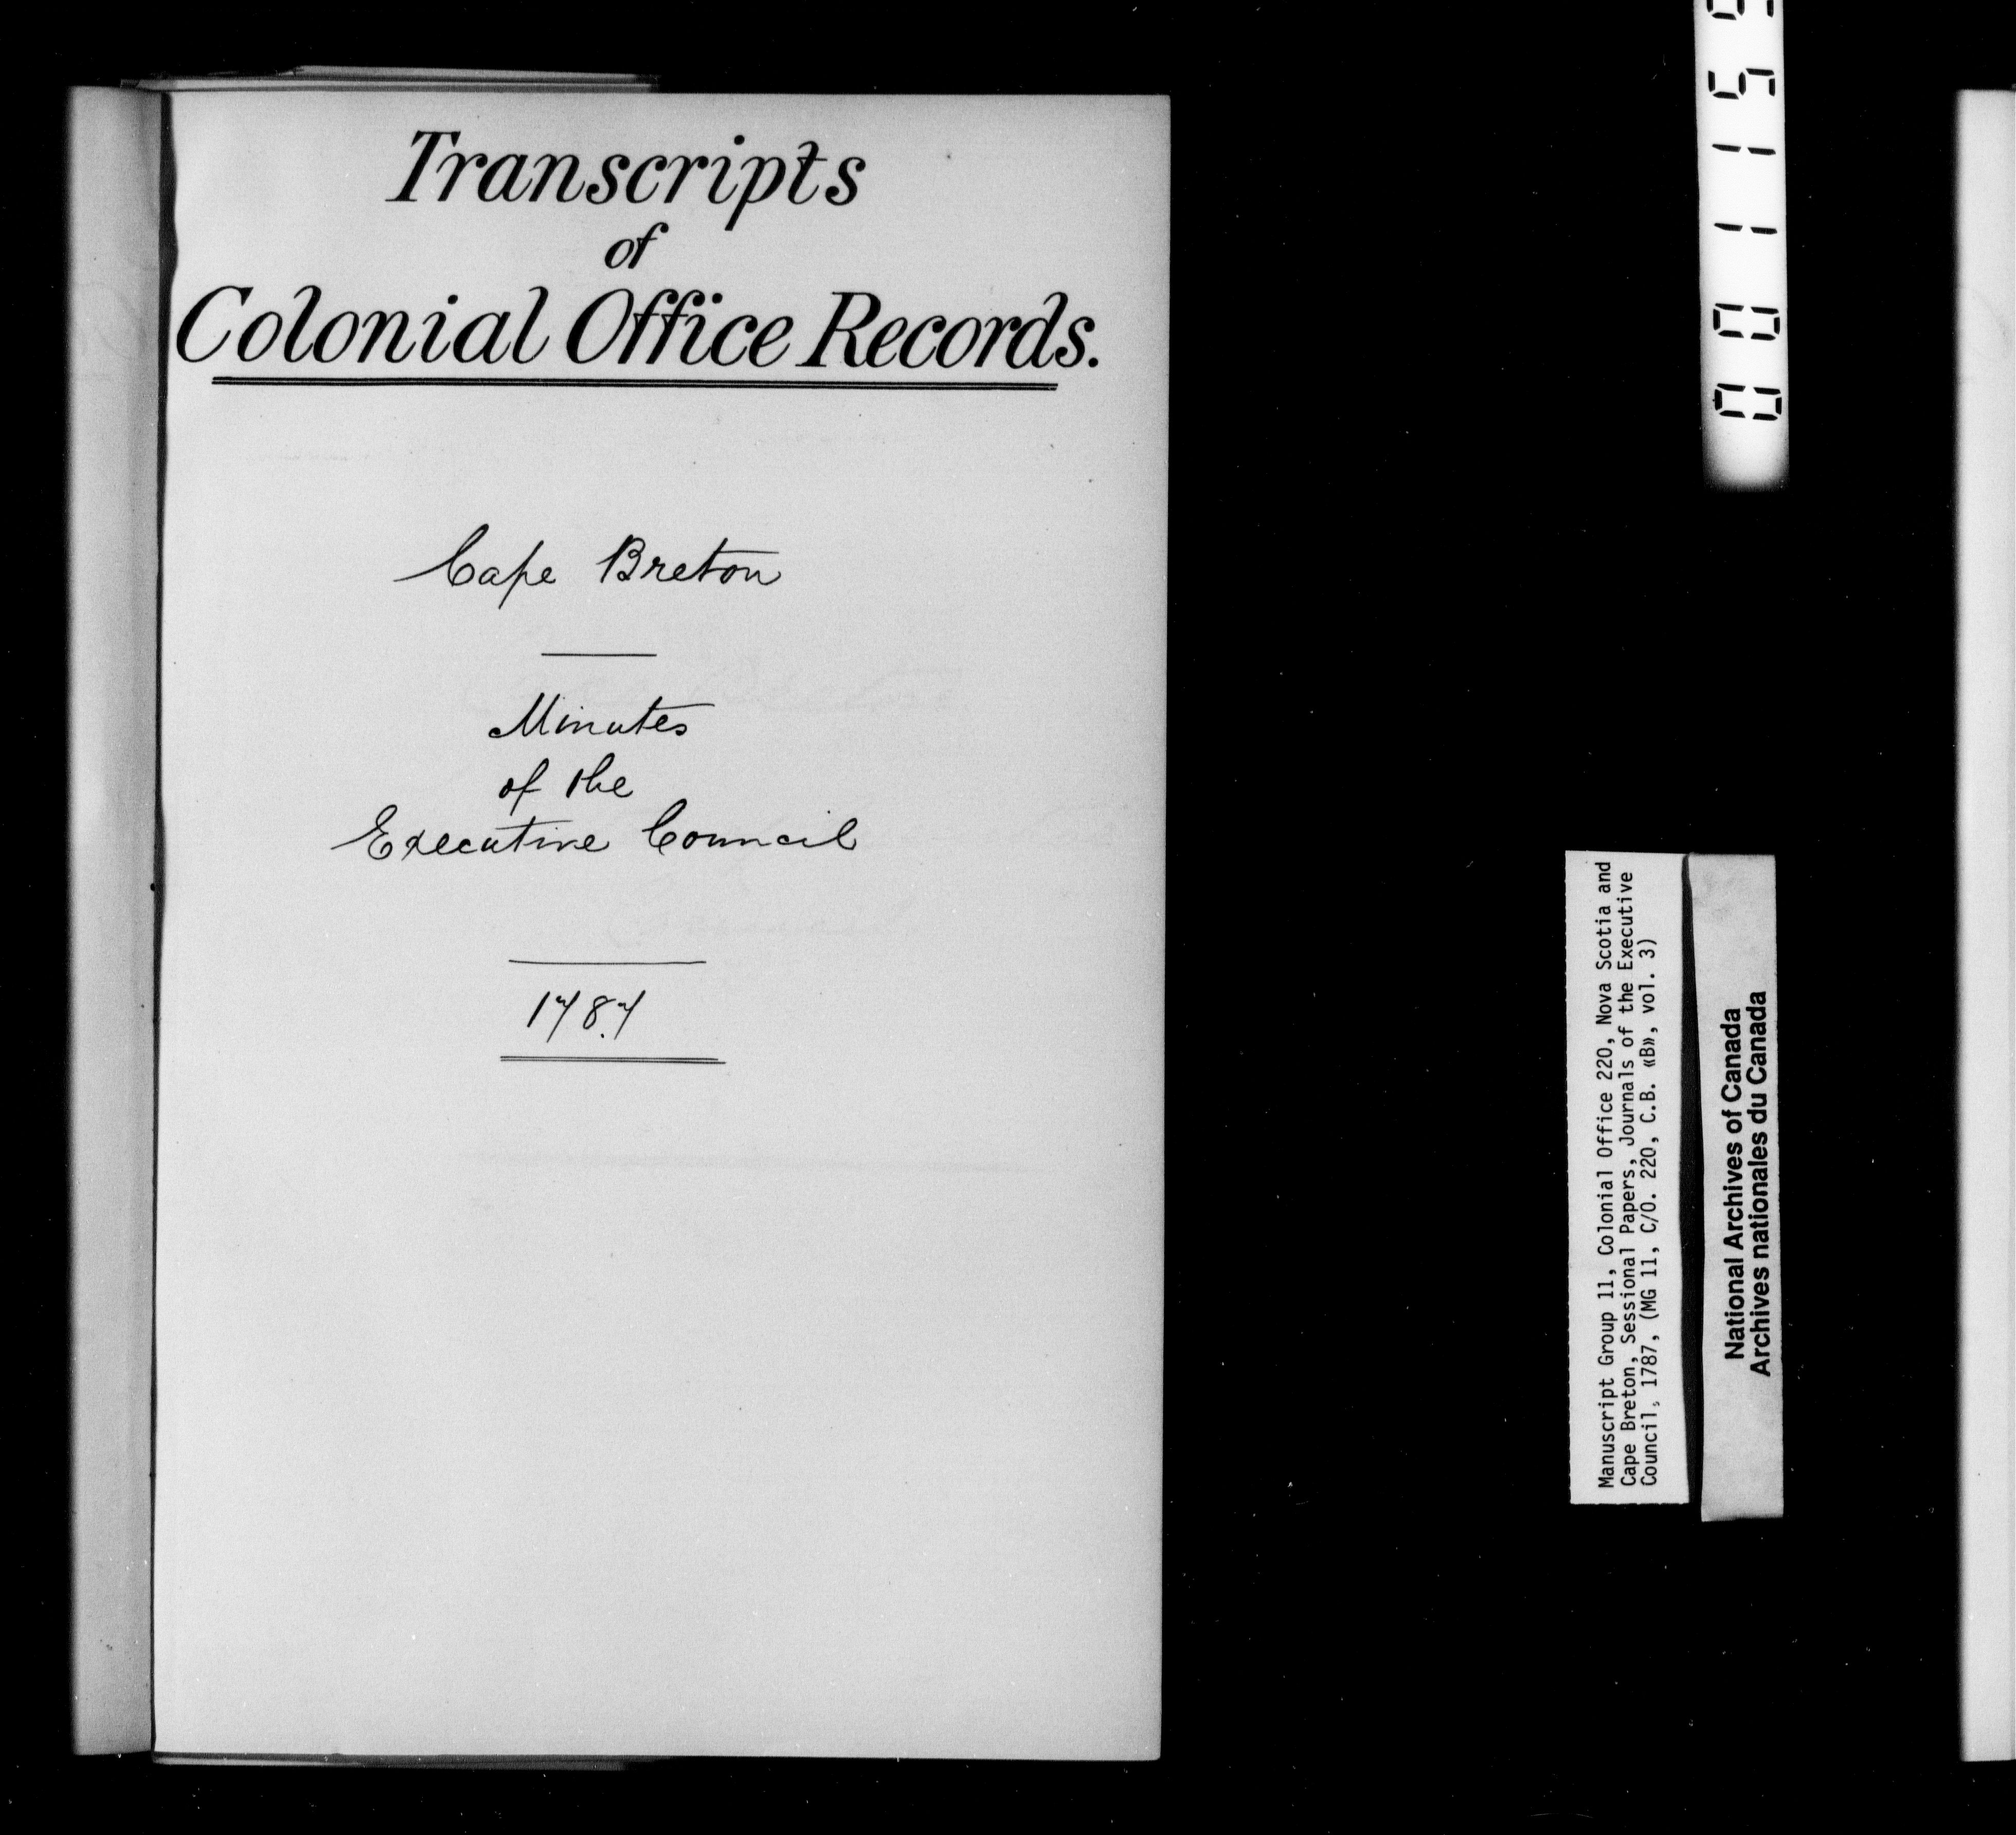 Transcripts
of
Colonial Office Records.
Cape Breton
Minutes
of the
Executive Council
1787
Manuscript Group 11, Colonial Office 220, Nova Scotia and
Cape Breton, Sessional Papers, Journals of the Executive
Council, 1787, (MG 11, C/O. 220, C.B. «B», vol. 3)
National Archives of Canada
Archives nationales du Canada
001159